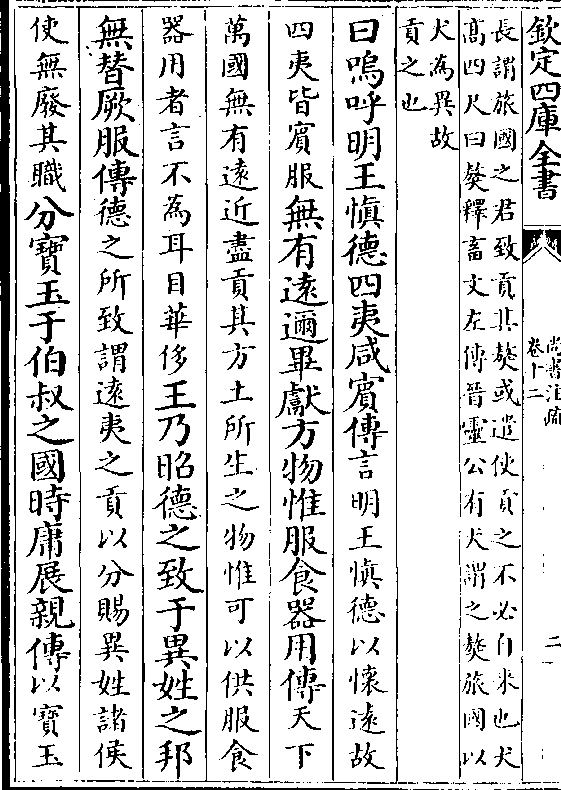 欽定四庫全書
尚書注疏
卷十二
二
長謂旅國之君致貢其獒或遣使貢之不必自来也犬
髙四尺曰獒釋畜文左傳晉靈公有犬謂之獒旅國以
犬為異故
貢之也
曰嗚呼明王慎德四夷咸賓傳言明王慎德以懐遠故
四夷皆賓服無有遠邇畢獻方物惟服食器用傳天下
萬國無有遠近盡貢其方土所生之物惟可以供服食
器用者言不為耳目華侈王乃昭德之致于異姓之邦
無替厥服傳德之所致謂遠夷之貢以分賜異姓諸侯
使無廢其職分寳玉于伯叔之國時庸展親傳以寳玉